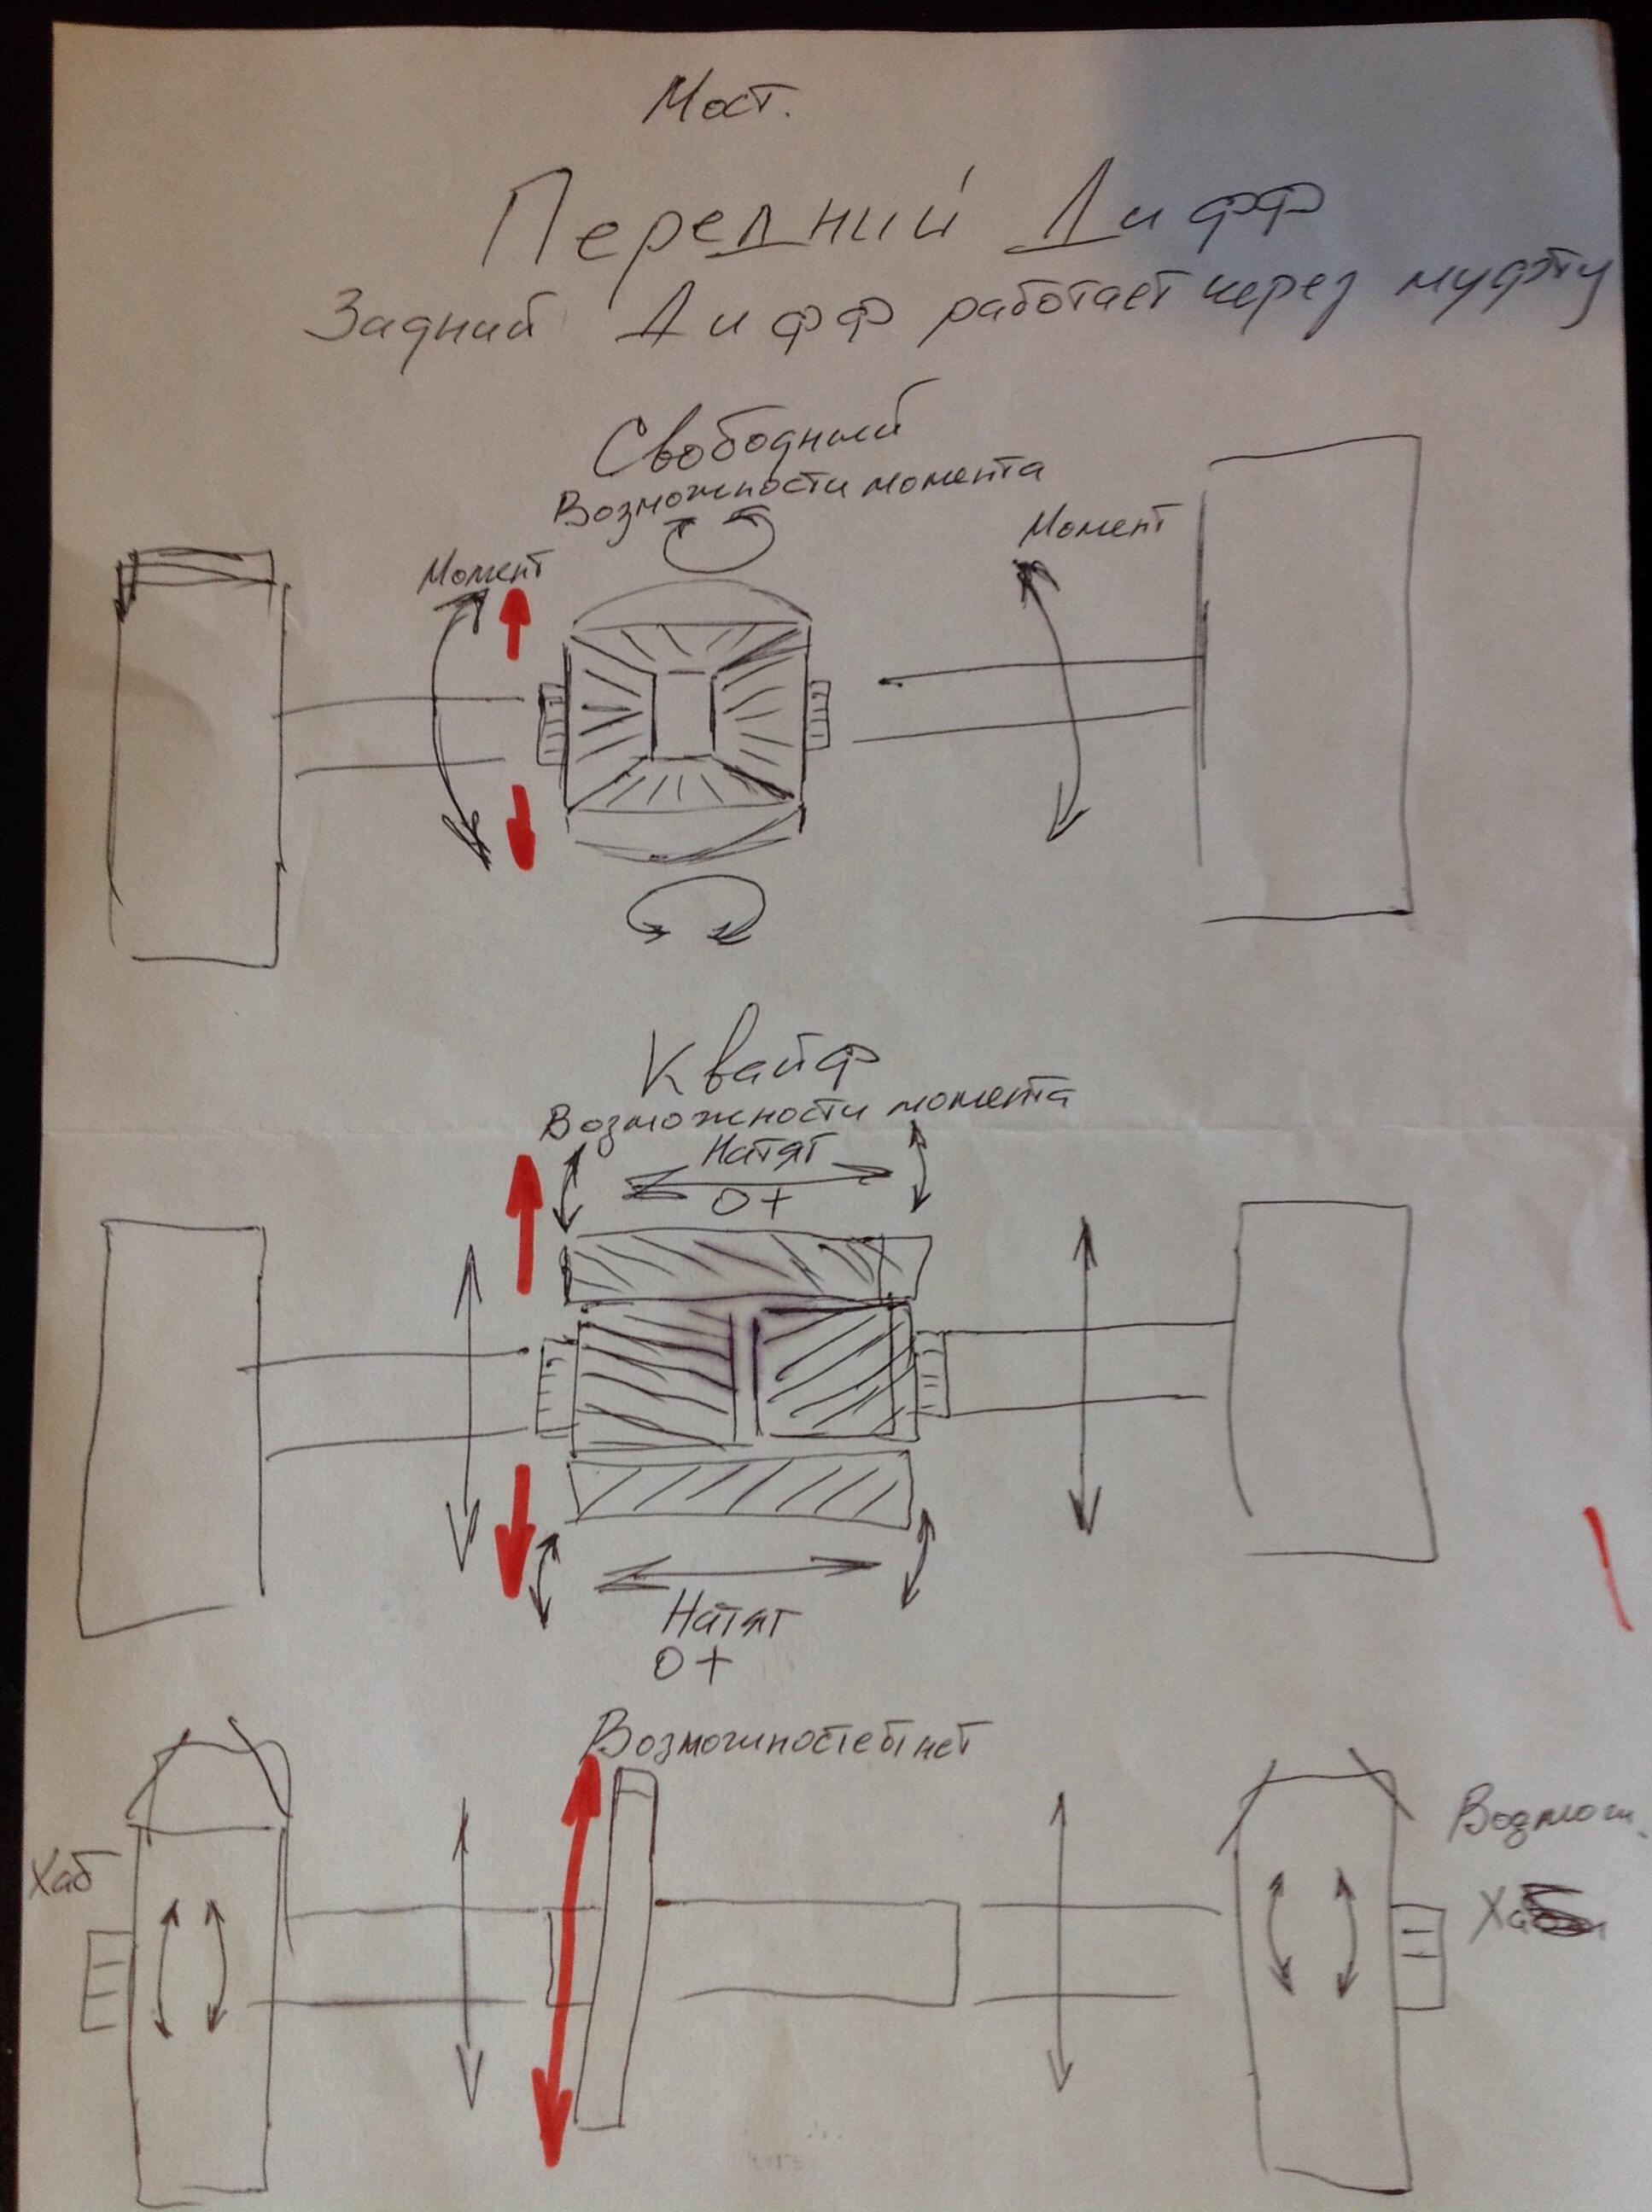 Мост.
Передний Дифф
Задний Дифф работает через муфту
Свободный
Возможности момента
Момент
Момент
Квайф
Возможности момента
Натят
0+
Натят
0+
нет
Хаб